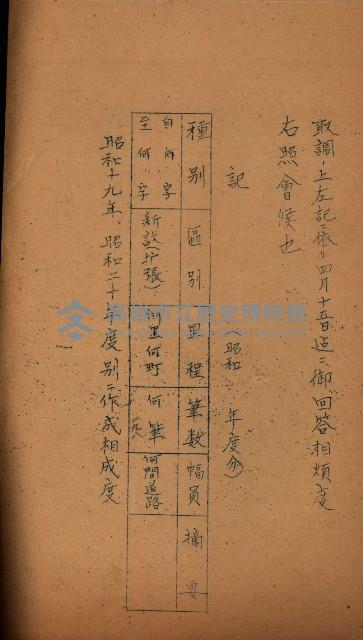 取調ノ上左記ニ依リ四月十五日迄ニ御回答相煩度
右照會候也
記
昭和　年度分)
種別　區別　里程　筆数　幅員　摘要
自何字
至何字
新設(拡張)　何里何町　何筆　何間道路
昭和十九年、昭和二十年度別ニ作成相成度
高雄市立歷史博物館